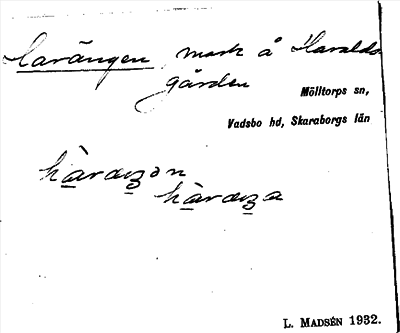 Harängen, mark å Haralds-
gården
Mölltorps sn,
Vadsbo hd, Skaraborgs län
L. MADSÉN 1932.